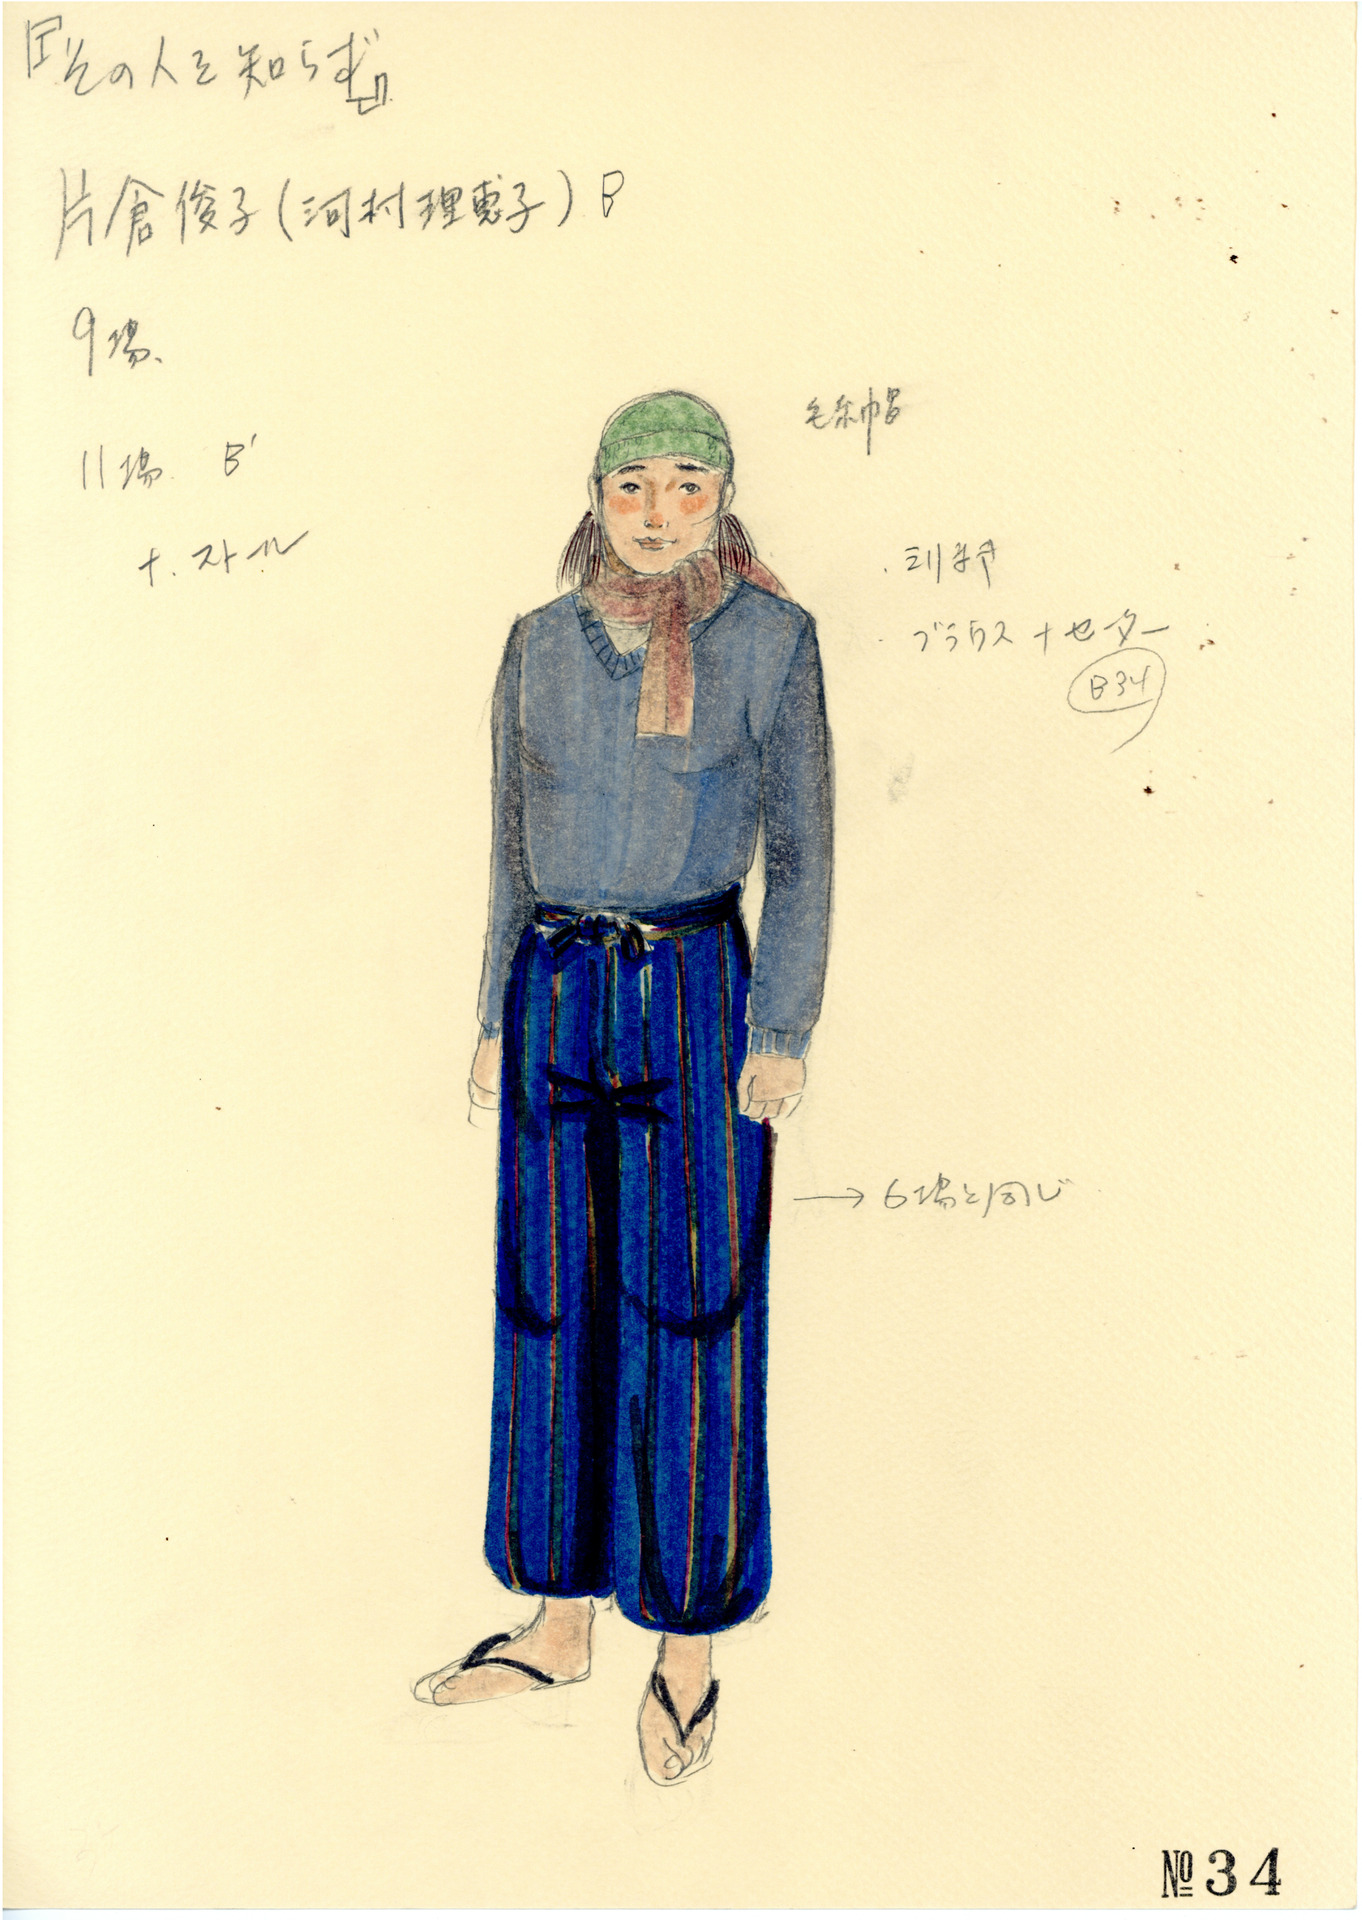 『その人を知らず』
片倉俊子(河村理恵子) B
9場、
11場. B'
+. ストール
毛糸帽
・ブラウス+セーター
B34
→6場と同じ
№34